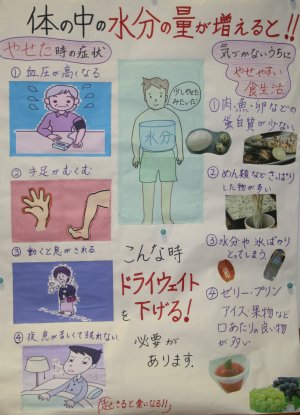 体の中の水分の量が増えると!!
やせた時の症状
① 血圧が高くなる
② 手足がむくむ
③ 動くと息がきれる
④ 夜、息が苦しくて眠れない
起きると楽になる!!
少しやせた
みたい!
水分
こんな時
ドライウェイト
を下げる!
必要が
あります。
気づかないうちに
やせやすい
食生活
① 肉、魚・卵などの
蛋白質が少ない
② めん類などさっぱり
した物が多い
③ 水分や氷ばかり
とってしまう
④ ゼリー・プリン
アイス・果物など
口あたりの良い物
が多い